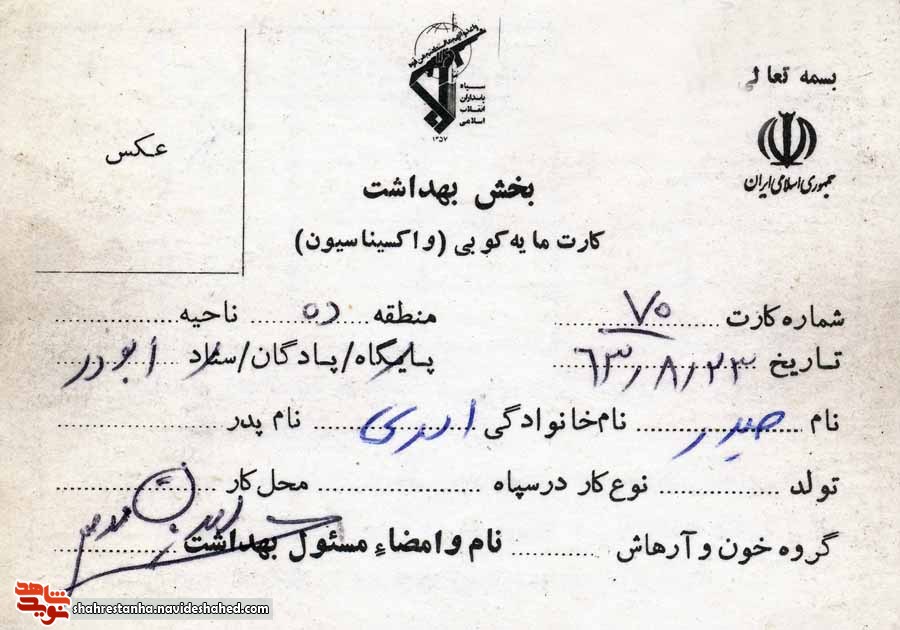 بسمه تعالی
جمهوری اسلامی ایران
سپاه
پاسداران
انقلاب
اسلامی
۱۳۵۷
عکس
بخش بهداشت
کارت مایه کوبی (واکسیناسیون)
شماره کارت ۷۰ منطقه ده ناحیه
تاریخ ۶۳/۸/۲۳ پایگاه/پادگان/ستاد ابوذر
نام حیدر نام خانوادگی نام پدر
تولد نوع کار در سپاه محل کار
گروه خون و آرهاش نام و امضاء مسئول بهداشت
نوید شاهد
shahrestanha.navideshahed.com